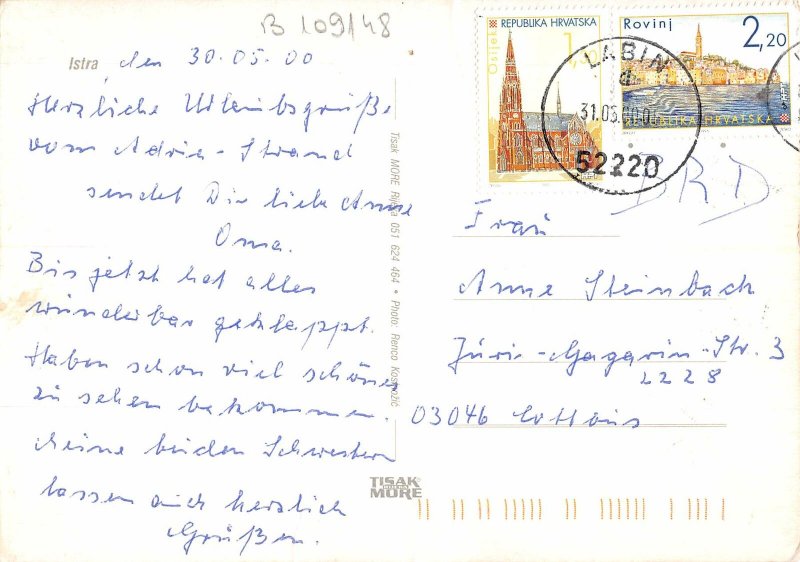 B 109/48
Istra, den 30.05.00
Herzliche Urlaubsgrüße
vom Adria-Strand
sendet Dir liebe Anne
Oma.
Bis jetzt hat alles
wunderbar geklappt.
Haben schon viel schönes
zu sehen bekommen.
Meine beiden Schwestern
lassen auch herzlich
Grüßen.
Tisak MORE Rijeka 051 624 464 • Photo: Renco Kosinožić
TISAK
MORE
Osijek
REPUBLIKA HRVATSKA
Rovinj
2,20
REPUBLIKA HRVATSKA
LABIN
31.05.00
52220
BRD
Frau
Anne Steinbach
Júri-Gagarin-Str. 3
2228
03046 Cottbus